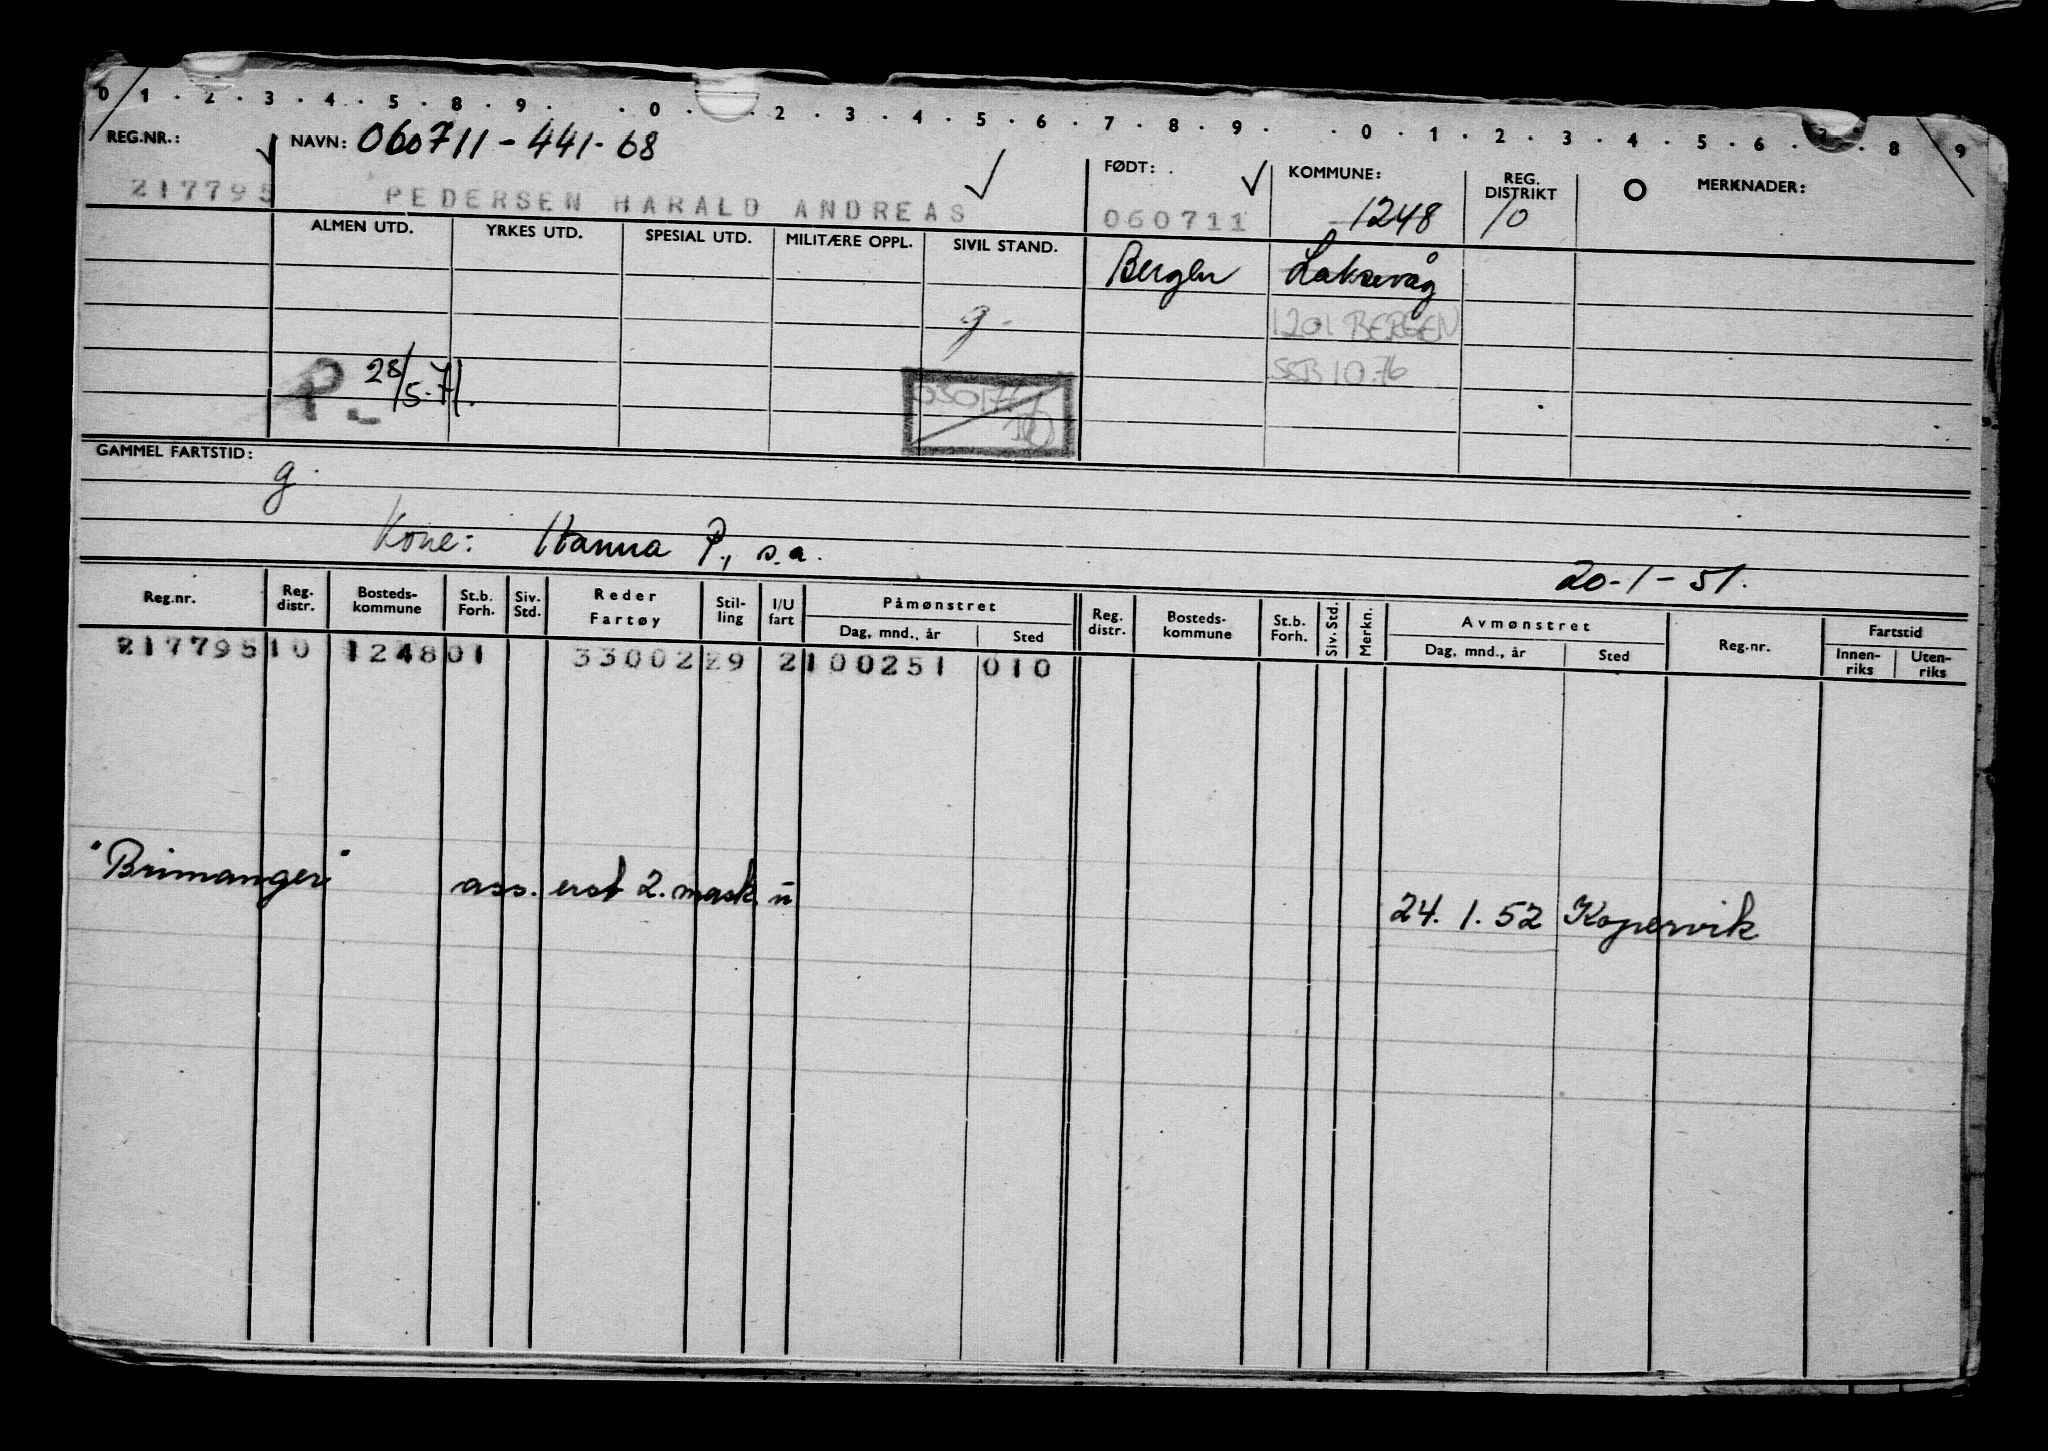 0 1 . 2 . 3 . 4 . 5 . 8 . 9 . . 0 . 2 . 3 . 4 . 5 . 6 . 7 . 8 . 9 . . 0 . 1 . 2 . 3 . 4 . 5 . 6 . . 8 9
REG.NR.: NAVN: 060711-441-68 FØDT: KOMMUNE: REG. DISTRIKT MERKNADER:
217795 PEDERSEN HARALD ANDREAS 060711 1248 10
ALMEN UTD. YRKES UTD. SPESIAL UTD. MILITÆRE OPPL. SIVIL STAND.
Bergen Laksevåg
g. 1201 BERGEN
P. 28/5.71. SSB 10.76
GAMMEL FARTSTID:
g.
Kone: Hanna P., s.a.
20-1-51.
Reg.nr. Reg. distr. Bosteds-kommune St.b. Forh. Siv. Std. Reder Fartøy Stil-ling I/U fart Påmønstret Reg. distr. Bosteds-kommune St.b. Forh. Siv. Std. Merkn. Avmønstret Reg.nr. Fartstid
Dag, mnd., år Sted Dag, mnd., år Sted Innen-riks Uten-riks
217795 10 1248 01 33002 29 2 100251 010
"Brimanger" ass. erst 2. mask. u 24. 1. 52 Kopervik